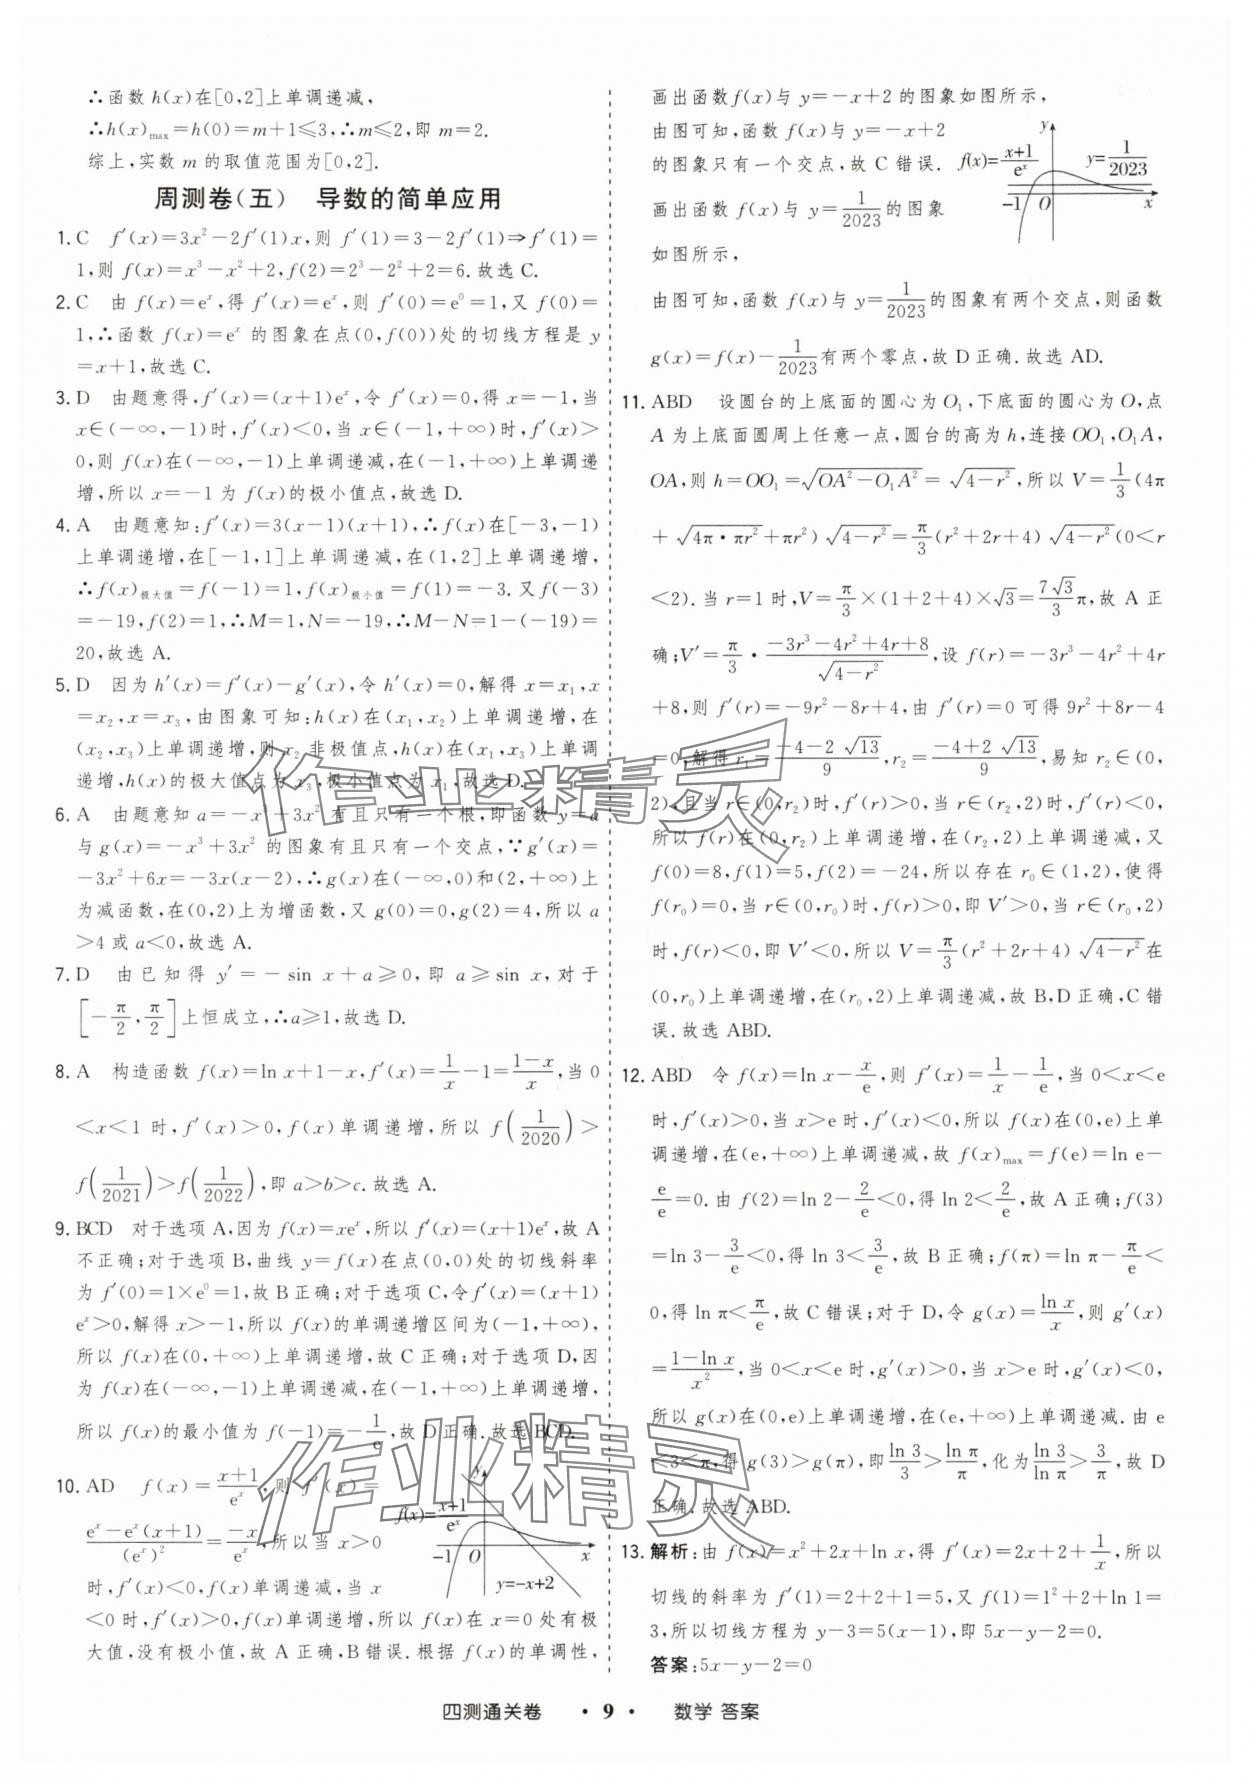 ∴函数 h(x)在[0,2]上单调递减,
∴h(x)max=h(0)=m+1≤3,∴m≤2,即 m=2.
综上,实数 m 的取值范围为[0,2].
周测卷(五) 导数的简单应用
1. C f′(x)=3x²-2f′(1)x,则 f′(1)=3-2f′(1)⇒f′(1)=
1,则 f(x)=x³-x²+2,f(2)=2³-2²+2=6.故选 C.
2. C 由 f(x)=eˣ,得 f′(x)=eˣ,则 f′(0)=e⁰=1,又 f(0)=
1,∴函数 f(x)=eˣ 的图象在点(0,f(0))处的切线方程是 y
=x+1,故选 C.
3. D 由题意得,f′(x)=(x+1)eˣ,令 f′(x)=0,得 x=-1,当
x∈(-∞,-1)时,f′(x)<0,当 x∈(-1,+∞)时,f′(x)>
0,则 f(x)在(-∞,-1)上单调递减,在(-1,+∞)上单调递
增,所以 x=-1 为 f(x)的极小值点,故选 D.
4. A 由题意知:f′(x)=3(x-1)(x+1),∴f(x)在[-3,-1)
上单调递增,在[-1,1]上单调递减,在(1,2]上单调递增,
∴f(x)极大值=f(-1)=1,f(x)极小值=f(1)=-3.又 f(-3)
=-19,f(2)=1,∴M=1,N=-19,∴M-N=1-(-19)=
20,故选 A.
5. D 因为 h′(x)=f′(x)-g′(x),令 h′(x)=0,解得 x=x₁,x
=x₂,x=x₃,由图象可知:h(x)在(x₁,x₂)上单调递增,在
(x₂,x₃)上单调递增,则 x₂ 非极值点,h(x)在(x₁,x₃)上单调
递增,h(x)的极大值点为 x₃,极小值点为 x₁,故选 D.
6. A 由题意知 a=-x³+3x² 有且只有一个根,即函数 y=a
与 g(x)=-x³+3x² 的图象有且只有一个交点,∵g′(x)=
-3x²+6x=-3x(x-2),∴g(x)在(-∞,0)和(2,+∞)上
为减函数,在(0,2)上为增函数,又 g(0)=0,g(2)=4,所以 a
>4 或 a<0,故选 A.
7. D 由已知得 y′=-sin x+a≥0,即 a≥sin x,对于
[-π/2,π/2]上恒成立,∴a≥1,故选 D.
8. A 构造函数 f(x)=ln x+1-x,f′(x)=1/x-1=(1-x)/x,当 0
<x<1 时,f′(x)>0,f(x)单调递增,所以 f(1/2020)>
f(1/2021)>f(1/2022),即 a>b>c.故选 A.
9. BCD 对于选项 A,因为 f(x)=xeˣ,所以 f′(x)=(x+1)eˣ,故 A
不正确;对于选项 B,曲线 y=f(x)在点(0,0)处的切线斜率
为 f′(0)=1×e⁰=1,故 B正确;对于选项 C,令f′(x)=(x+1)
eˣ>0,解得 x>-1,所以 f(x)的单调递增区间为(-1,+∞),
所以 f(x)在(0,+∞)上单调递增,故 C 正确;对于选项 D,因
为 f(x)在(-∞,-1)上单调递减,在(-1,+∞)上单调递增,
所以 f(x)的最小值为 f(-1)=-1/e,故 D正确.故选 BCD.
10. AD f(x)=(x+1)/eˣ,则 f′(x)=
(eˣ-eˣ(x+1))/(eˣ)²=-x/eˣ,所以当 x>0
时,f′(x)<0,f(x)单调递减,当 x
<0 时,f′(x)>0,f(x)单调递增,所以 f(x)在 x=0 处有极
大值,没有极小值,故 A 正确,B 错误.根据 f(x)的单调性,
y
f(x)=(x+1)/eˣ
-1 O x
y=-x+2
画出函数 f(x)与 y=-x+2 的图象如图所示,
由图可知,函数 f(x)与 y=-x+2
的图象只有一个交点,故 C 错误.
画出函数 f(x)与 y=1/2023的图象
如图所示,
y
f(x)=(x+1)/eˣ y=1/2023
-1 O x
由图可知,函数 f(x)与 y=1/2023的图象有两个交点,则函数
g(x)=f(x)-1/2023有两个零点,故 D 正确.故选 AD.
11. ABD 设圆台的上底面的圆心为 O₁,下底面的圆心为 O,点
A 为上底面圆周上任意一点,圆台的高为 h,连接 OO₁,O₁A,
OA,则 h=OO₁=√(OA²-O₁A²)=√(4-r²),所以 V=1/3(4π
+√(4π·πr²)+πr²)√(4-r²)=π/3(r²+2r+4)√(4-r²)(0<r
<2).当 r=1 时,V=π/3×(1+2+4)×√3=7√3/3π,故 A 正
确;V′=π/3·(-3r³-4r²+4r+8)/√(4-r²),设 f(r)=-3r³-4r²+4r
+8,则 f′(r)=-9r²-8r+4,由 f′(r)=0 可得 9r²+8r-4
=0,解得 r₁=(-4-2√13)/9,r₂=(-4+2√13)/9,易知 r₂∈(0,
2),且当 r∈(0,r₂)时,f′(r)>0,当 r∈(r₂,2)时,f′(r)<0,
所以 f(r)在(0,r₂)上单调递增,在(r₂,2)上单调递减,又
f(0)=8,f(1)=5,f(2)=-24,所以存在 r₀∈(1,2),使得
f(r₀)=0,当 r∈(0,r₀)时,f(r)>0,即 V′>0,当 r∈(r₀,2)
时,f(r)<0,即 V′<0,所以 V=π/3(r²+2r+4)√(4-r²)在
(0,r₀)上单调递增,在(r₀,2)上单调递减,故 B,D 正确,C 错
误.故选 ABD.
12. ABD 令 f(x)=ln x-x/e,则 f′(x)=1/x-1/e,当 0<x<e
时,f′(x)>0,当 x>e 时,f′(x)<0,所以 f(x)在(0,e)上单
调递增,在(e,+∞)上单调递减,故 f(x)max=f(e)=ln e-
e/e=0.由 f(2)=ln 2-2/e<0,得 ln 2<2/e,故 A 正确;f(3)
=ln 3-3/e<0,得 ln 3<3/e,故 B 正确;f(π)=ln π-π/e<
0,得 ln π<π/e,故 C 错误;对于 D,令 g(x)=ln x/x,则 g′(x)
=(1-ln x)/x²,当 0<x<e 时,g′(x)>0,当 x>e 时,g′(x)<0,
所以 g(x)在(0,e)上单调递增,在(e,+∞)上单调递减.由 e
<3<π,得 g(3)>g(π),即ln 3/3>ln π/π,化为ln 3/ln π>3/π,故 D
正确.故选 ABD.
13. 解析:由 f(x)=x²+2x+ln x,得 f′(x)=2x+2+1/x,所以
切线的斜率为 f′(1)=2+2+1=5,又 f(1)=1²+2+ln 1=
3,所以切线方程为 y-3=5(x-1),即 5x-y-2=0.
答案:5x-y-2=0
四测通关卷 · 9 · 数学 答案
作业精灵
作业精灵